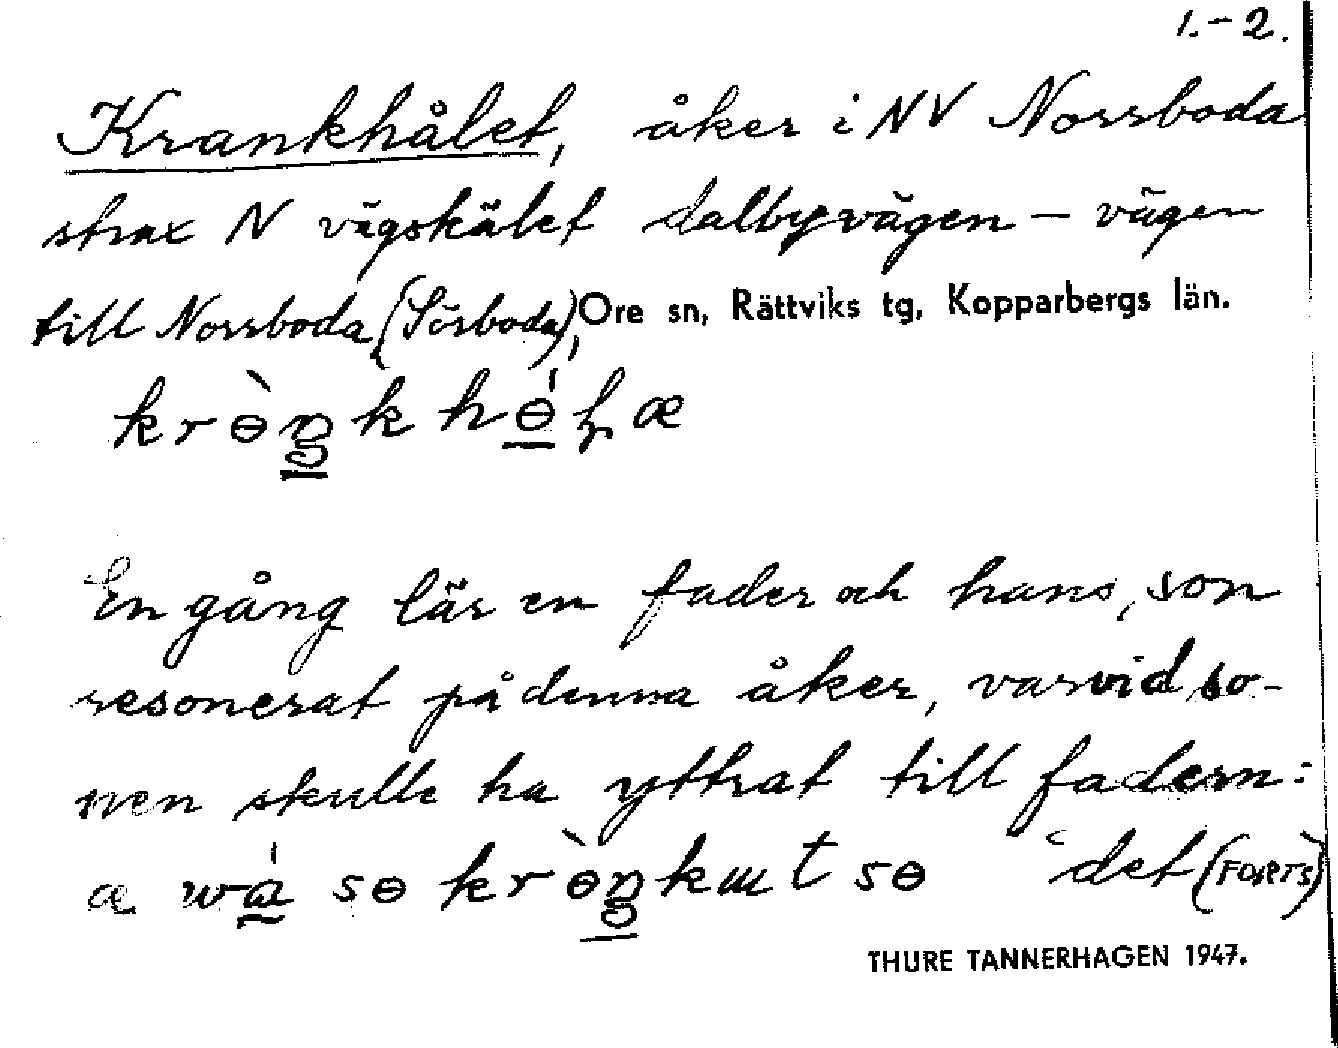 1.-2.
Krankhålet, åker i NV Norrboda
strax N vägskälet dalbyvägen — vägen
till Norrboda (Sörboda), Ore sn, Rättviks tg, Kopparbergs län.
En gång lär en fader och hans, son
resonerat på denna åker, varvid so-
nen skulle ha yttrat till fadern:
det (FORTS)
THURE TANNERHAGEN 1947.